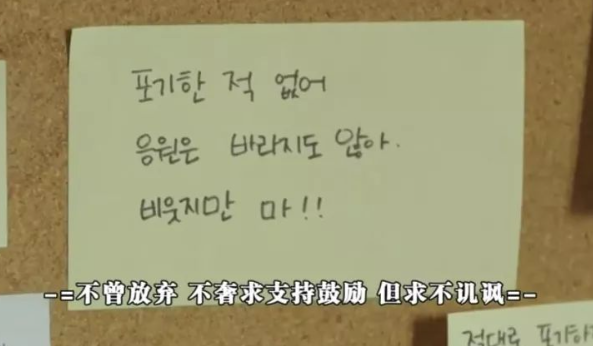 포기한 적 없어
응원은 바라지도 않아.
비웃지만 마!!
-=不曾放弃 不奢求支持鼓励 但求不讥讽=-
절대로 포기하